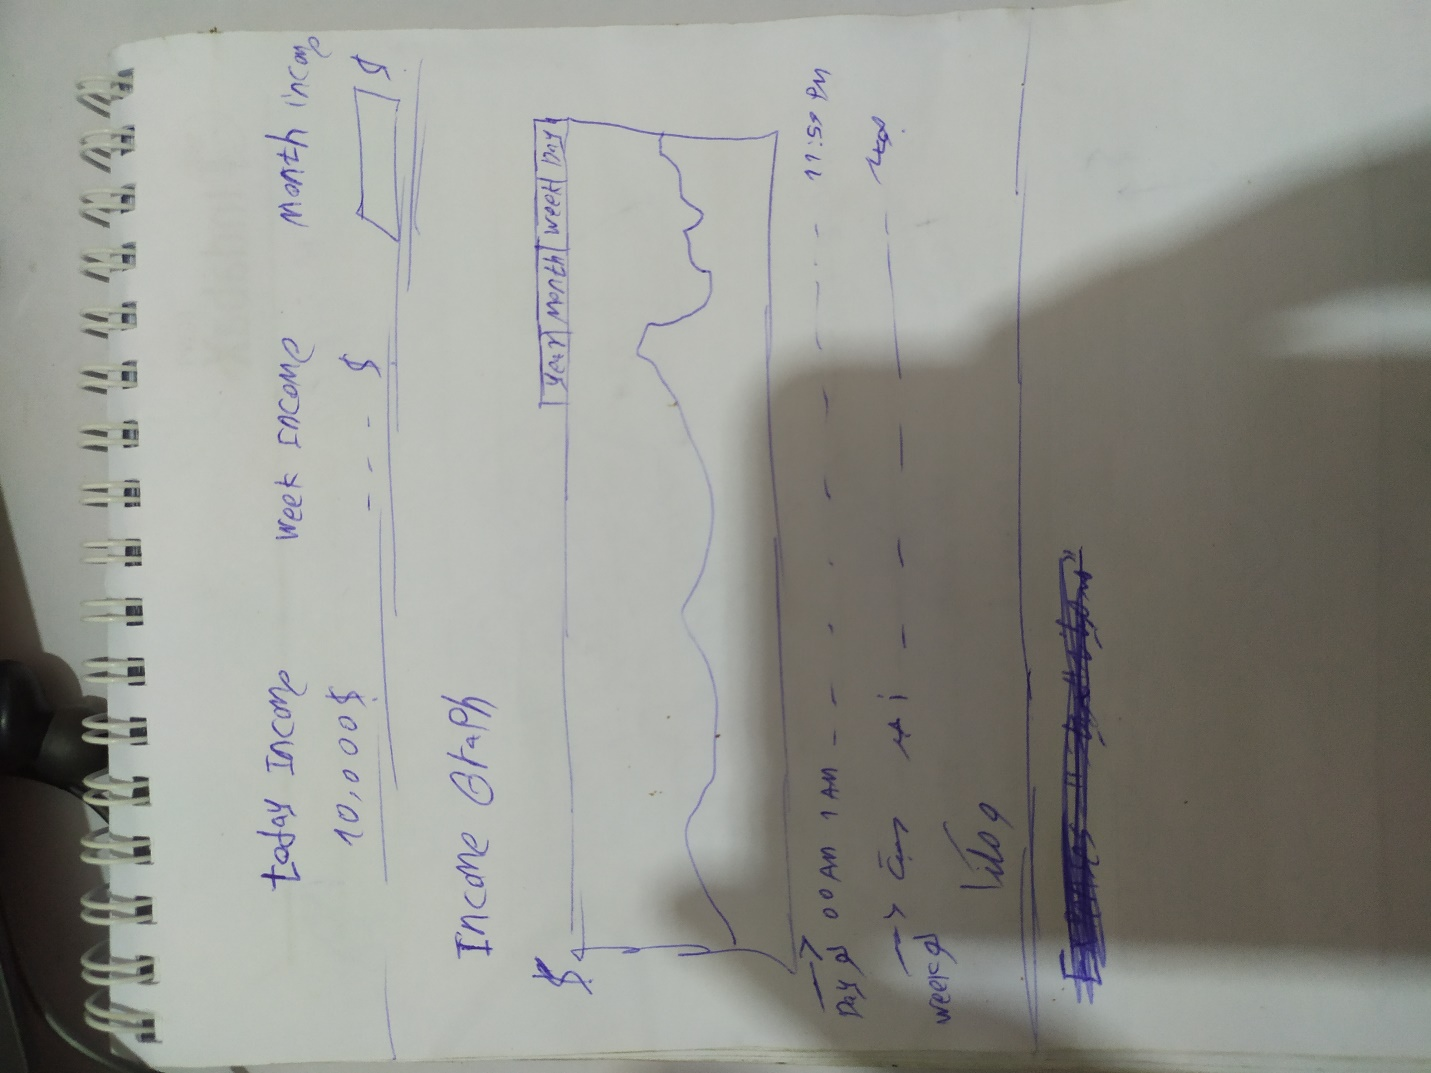 today Income week Income Month incom
10,000$ - - - $ $
Income Graph
$ Year Month week Day
Day 00 AM 1 AM - - - - - - - 11:59 PM
week